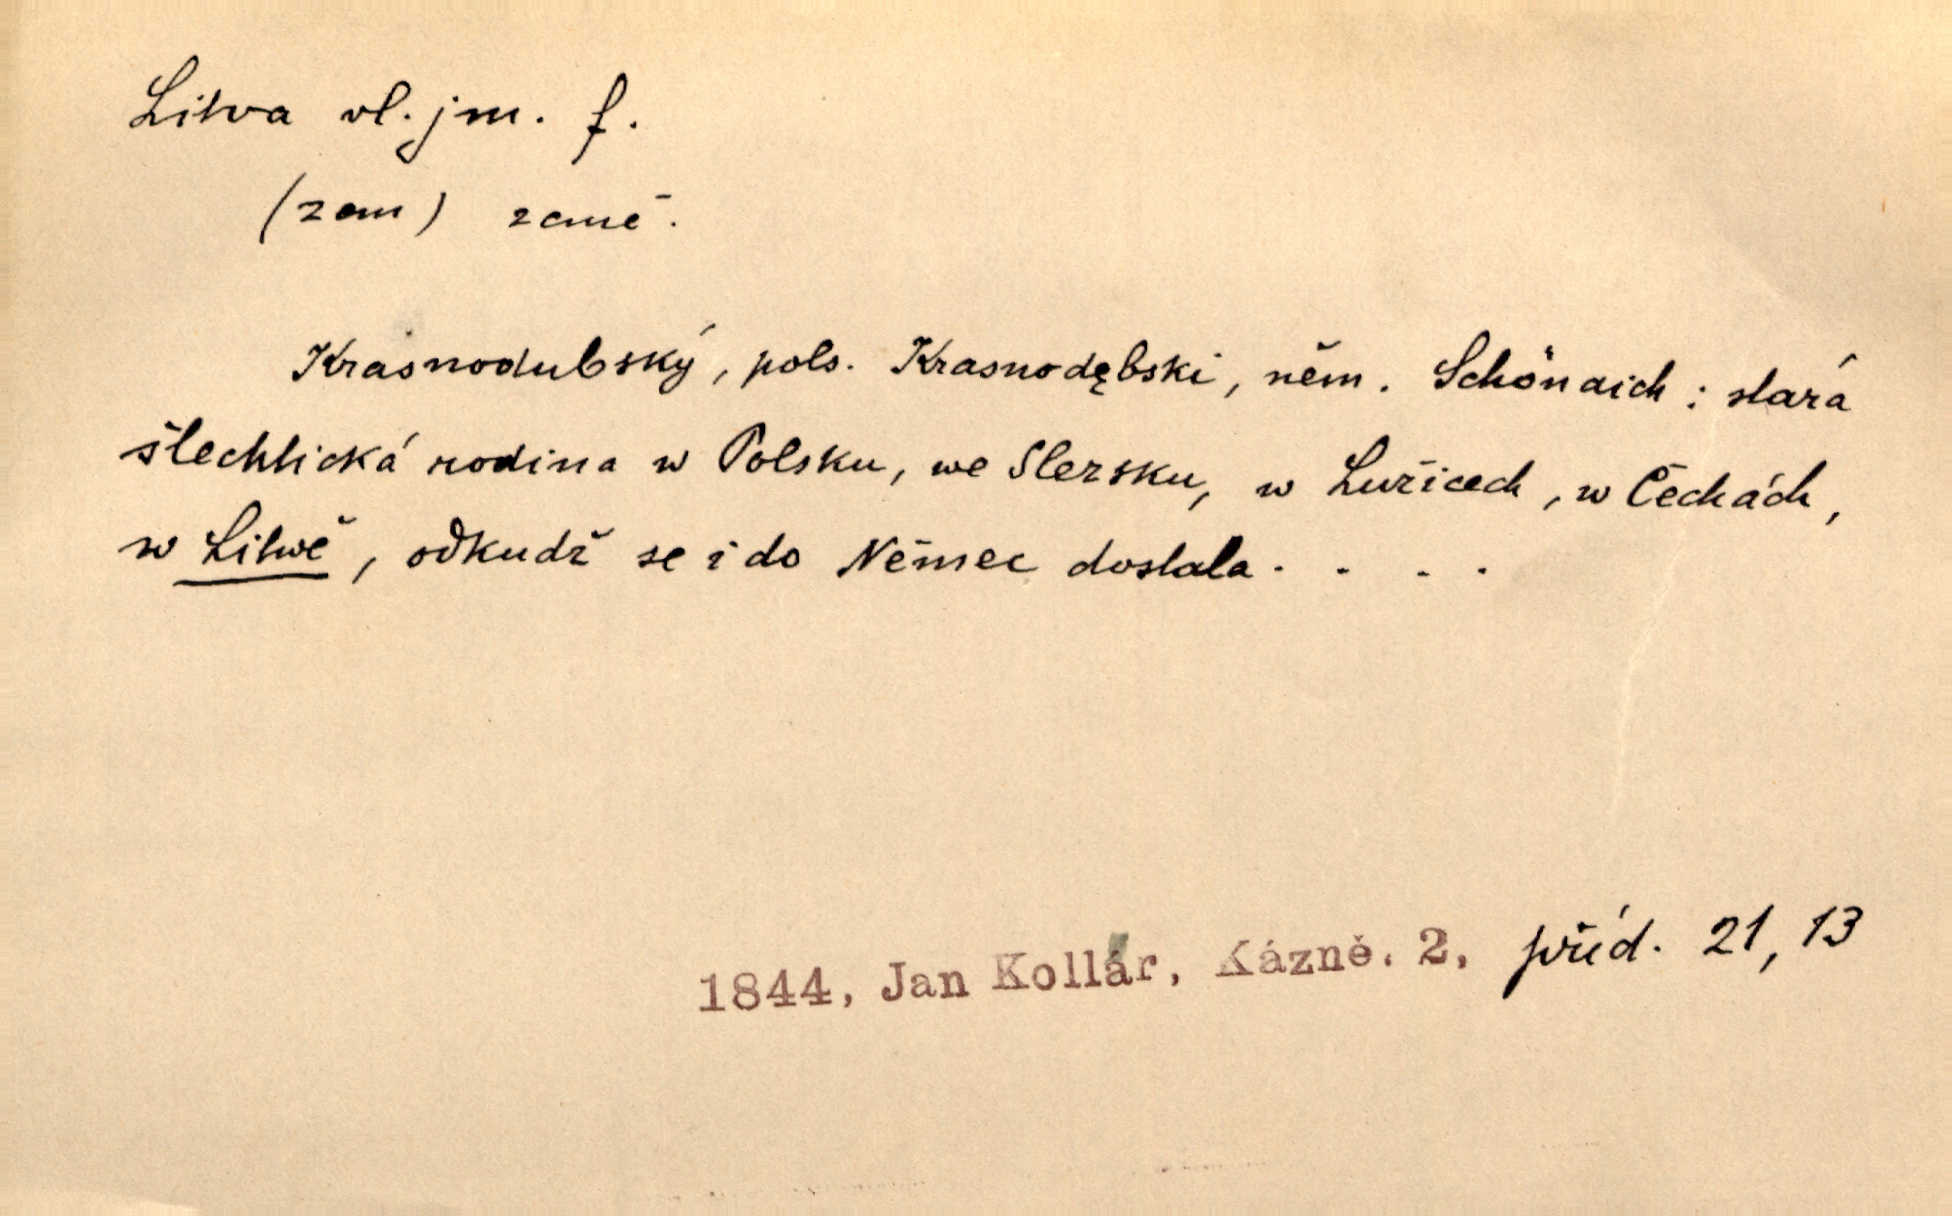 Litva vl. jm. f.
(zem) země.
Krasnodubský, pols. Krasnodębski, něm. Schönaich: stará
šlechtická rodina w Polsku, we Slezsku, w Lužicech, w Čechách,
w Litwě, odkudž se i do Němec dostala . . . .
1844, Jan Kollár, Kázně. 2, příd. 21, 13